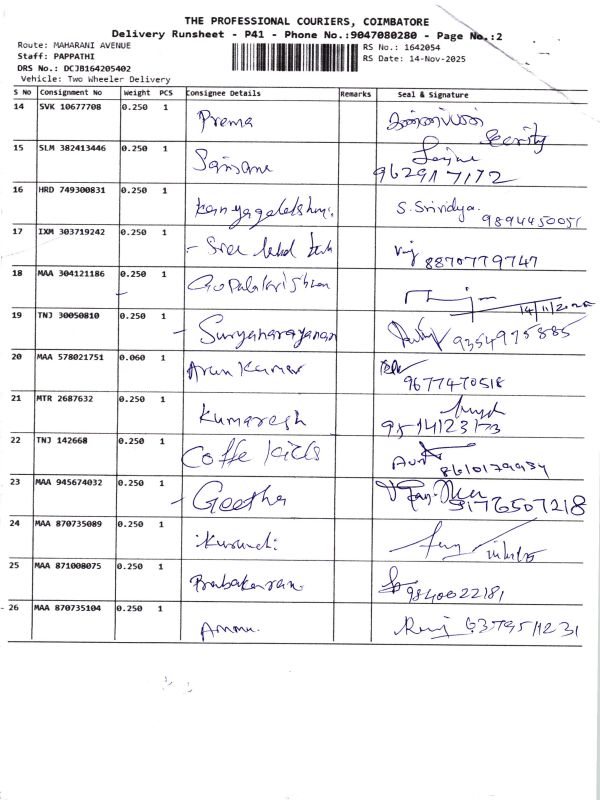 THE PROFESSIONAL COURIERS, COIMBATORE
Delivery Runsheet - P41 - Phone No.:9047080280 - Page No.:2
Route: MAHARANI AVENUE
Staff: PAPPATHI
DRS No.: DCJB164205402
Vehicle: Two Wheeler Delivery
RS No.: 1642054
RS Date: 14-Nov-2025
S No Consignment No Weight PCS Consignee Details Remarks Seal & Signature
14 SVK 10677708 0.250 1 Prema
15 SLM 382413446 0.250 1 9629117172
16 HRD 749300831 0.250 1 S. Srividya. 9894450051
17 IXM 303719242 0.250 1 8870779747
18 MAA 304121186 0.250 1 Gopalakrishnan 14/11/2025
19 TNJ 30050810 0.250 1 Suryanarayanan 9354975885
20 MAA 578021751 0.060 1 Arun Kumar 9677470518
21 MTR 2687632 0.250 1 Kumaresh
22 TNJ 142668 0.250 1 Coffe kicks
23 MAA 945674032 0.250 1 Geetha
24 MAA 870735089 0.250 1
25 MAA 871008075 0.250 1 Prabakaran 9840022181
26 MAA 870735104 0.250 1 Ammu.